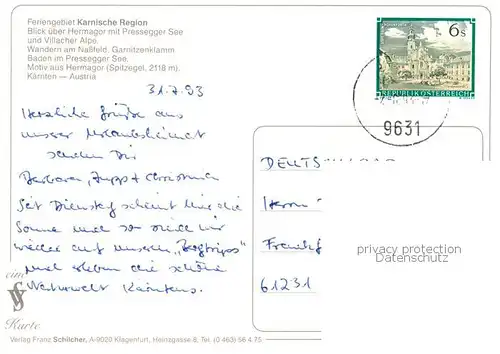 Feriengebiet Karnische Region
Blick über Hermagor mit Pressegger See
und Villacher Alpe.
Wandern am Naßfeld, Garnitzenklamm
Baden im Pressegger See.
Motiv aus Hermagor (Spitzegel, 2118 m).
Kärnten — Austria
6 S
REPUBLIK ÖSTERREICH
9631
31.7.93
Herzliche Grüße aus
unserer Urlaubsheimat
senden Dir
Barbara,
Seit Dienstag scheint hier die
Sonne und so sind wir
wieder auf unseren „Bergtrips"
und erleben die schöne
Naturwelt Kärntens.
DEUTSCHLAND
Herrn
Frankf
61231
privacy protection
Datenschutz
eine
Karte
Verlag Franz Schilcher, A-9020 Klagenfurt, Heinzgasse 8, Tel. (0 463) 56 4 75